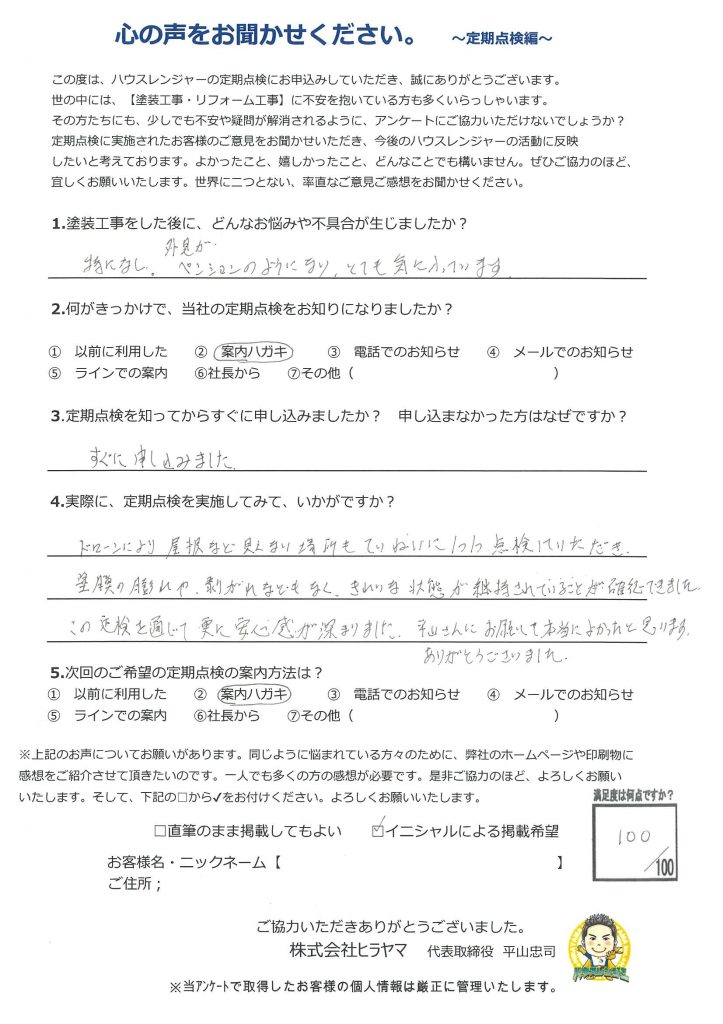 心の声をお聞かせください。 ～定期点検編～
この度は、ハウスレンジャーの定期点検にお申込みしていただき、誠にありがとうございます。
世の中には、【塗装工事・リフォーム工事】に不安を抱いている方も多くいらっしゃいます。
その方たちにも、少しでも不安や疑問が解消されるように、アンケートにご協力いただけないでしょうか？
定期点検に実施されたお客様のご意見をお聞かせいただき、今後のハウスレンジャーの活動に反映
したいと考えております。よかったこと、嬉しかったこと、どんなことでも構いません。ぜひご協力のほど、
宜しくお願いいたします。世界に二つとない、率直なご意見ご感想をお聞かせください。
1.塗装工事をした後に、どんなお悩みや不具合が生じましたか？
外見が
特になし。ペンションのようになり、とても気に入っています。
2.何がきっかけで、当社の定期点検をお知りになりましたか？
① 以前に利用した ② 案内ハガキ ③ 電話でのお知らせ ④ メールでのお知らせ
⑤ ラインでの案内 ⑥社長から ⑦その他（ ）
3.定期点検を知ってからすぐに申し込みましたか？ 申し込まなかった方はなぜですか？
すぐに申し込みました。
4.実際に、定期点検を実施してみて、いかがですか？
ドローンにより屋根など見えない場所もていねいに点検していただき、
塗膜の膨れや、剥がれなどもなく、きれいな状態が維持されていることが確認できました。
この点検を通じて更に安心感が深まりました。平山さんにお願いして本当によかったと思います。
ありがとうございました。
5.次回のご希望の定期点検の案内方法は？
① 以前に利用した ② 案内ハガキ ③ 電話でのお知らせ ④ メールでのお知らせ
⑤ ラインでの案内 ⑥社長から ⑦その他（ ）
※上記のお声についてお願いがあります。同じように悩まれている方々のために、弊社のホームページや印刷物に
感想をご紹介させて頂きたいのです。一人でも多くの方の感想が必要です。是非ご協力のほど、よろしくお願い
いたします。そして、下記の□から✓をお付けください。よろしくお願いいたします。
満足度は何点ですか？
100
/100
□直筆のまま掲載してもよい ☑イニシャルによる掲載希望
お客様名・ニックネーム【 】
ご住所；
ご協力いただきありがとうございました。
株式会社ヒラヤマ 代表取締役 平山忠司
※当アンケートで取得したお客様の個人情報は厳正に管理いたします。